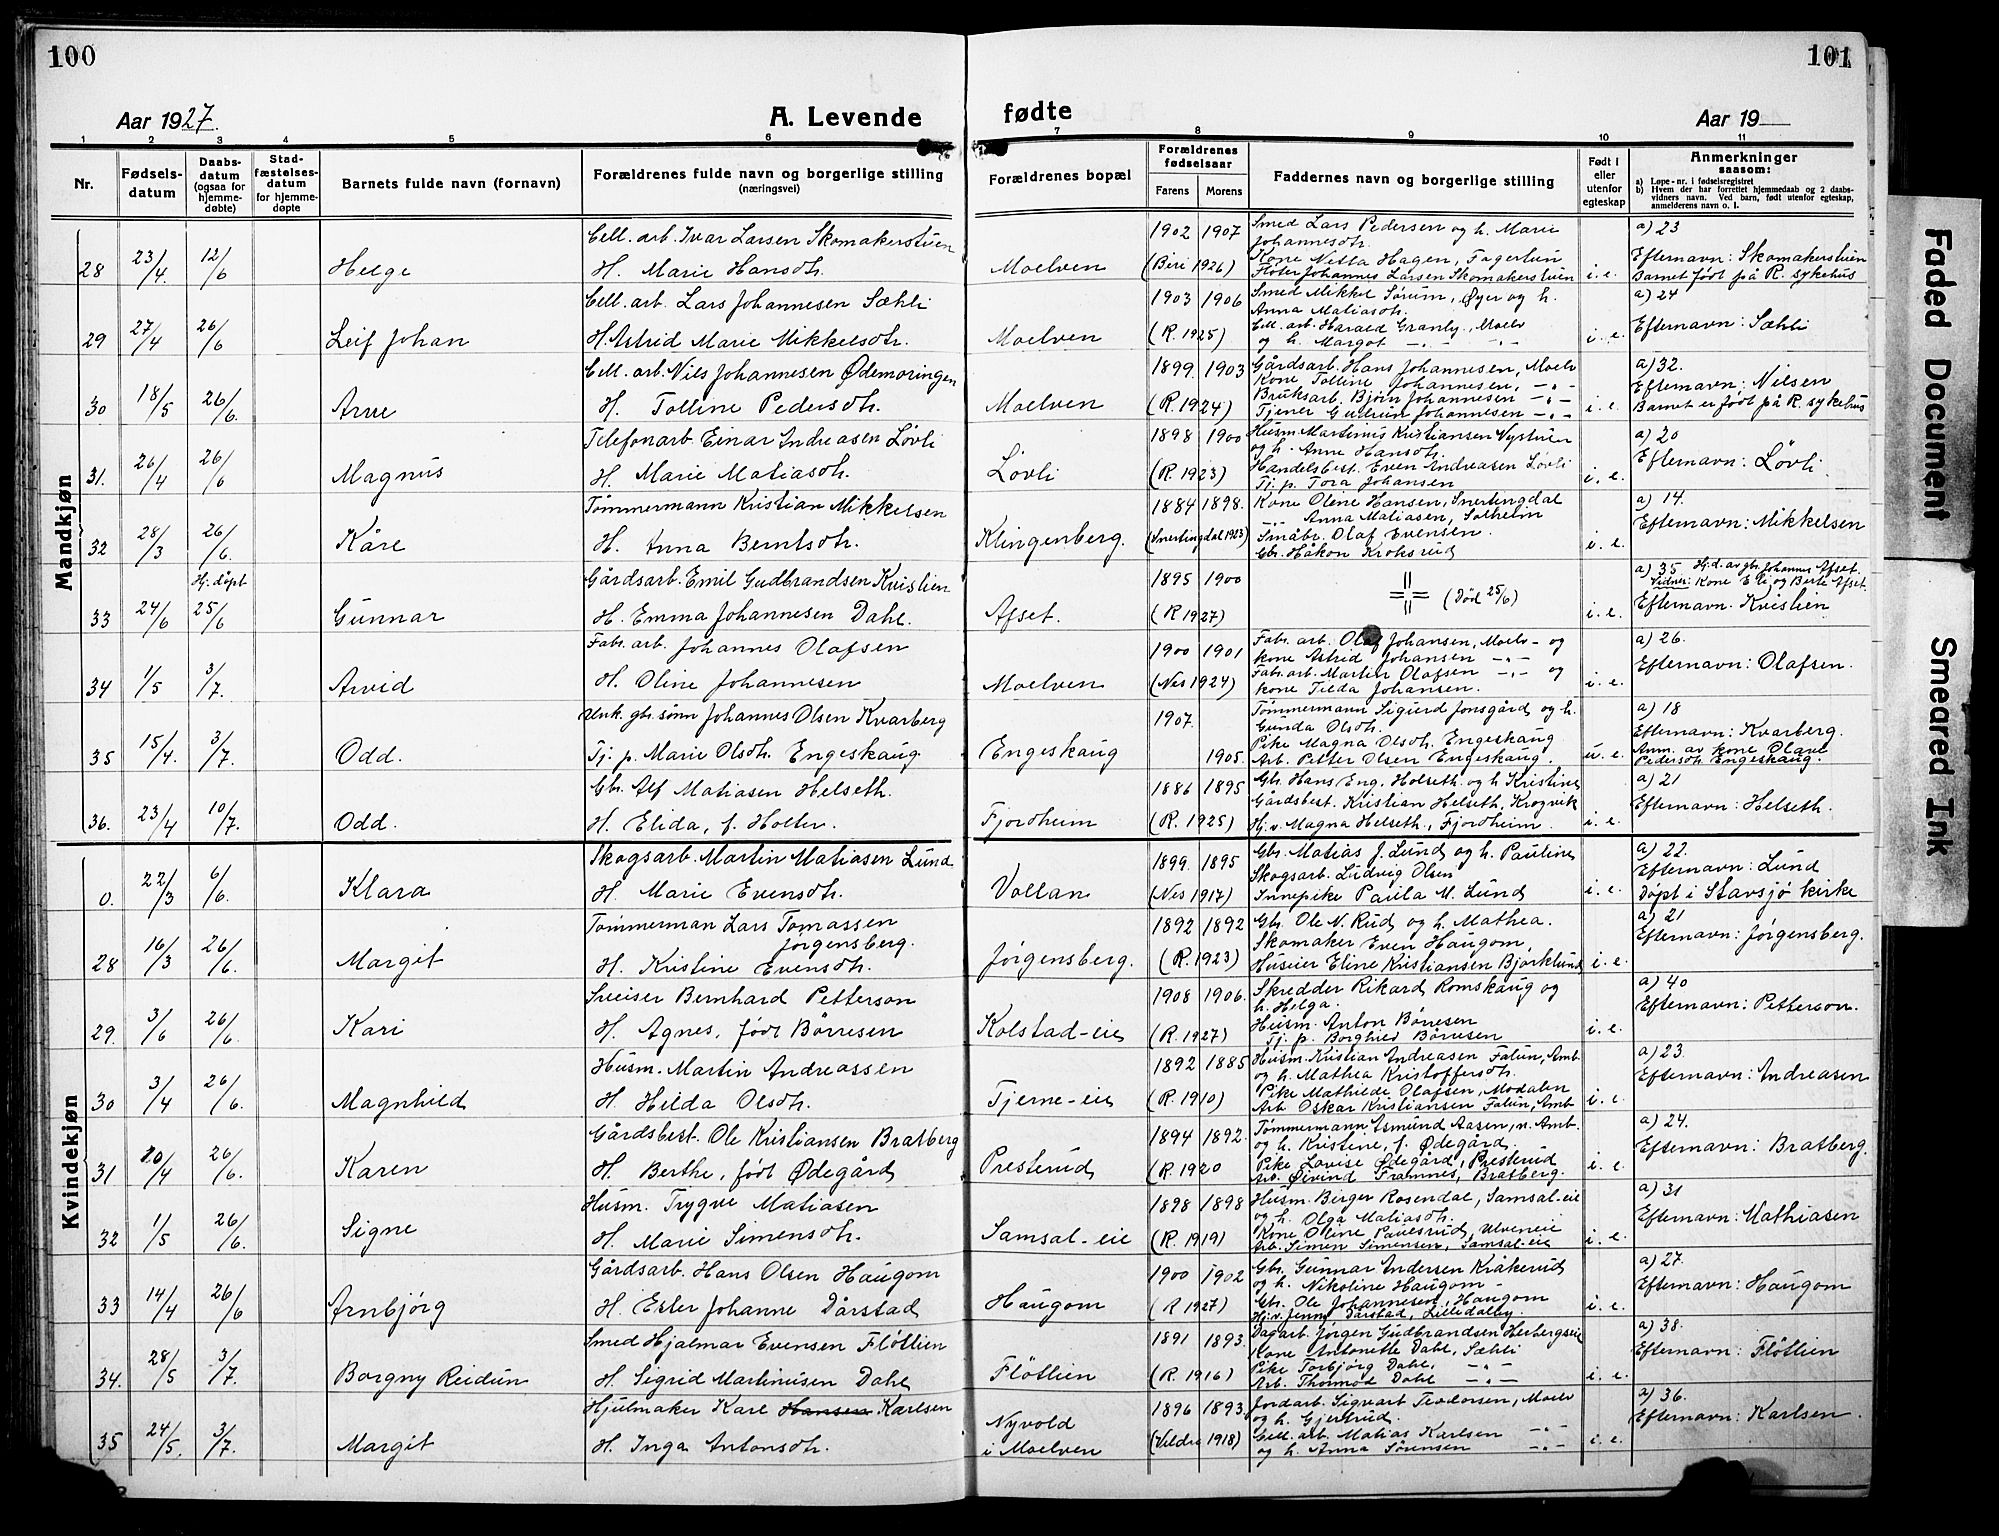 100
101
Aar 1927.
A. Levende fødte
Aar 19
1 2 3 4 5 6 7 8 9 10 11
Nr.
Fødsels-
datum
Daabs-
datum
(ogsaa for
hjemme-
døbte)
Stad-
fæstelses-
datum
for hjemme-
døpte
Barnets fulde navn (fornavn)
Forældrenes fulde navn og borgerlige stilling
(næringsvei)
Forældrenes bopæl
Forældrenes
fødselsaar
Farens Morens
Faddernes navn og borgerlige stilling
Født i
eller
utenfor
egteskap
Anmerkninger
saasom:
a) Løpe-nr. i fødselsregistret
b) Hvem der har forrettet hjemmedaab og 2 daabs-
vidners navn. Ved barn, født utenfor egteskap,
anmelderens navn o. l.
Mandkjøn
Cell. arb. Ivar Larsen Skomakerstuen 1902 1907 Smed Lars Pedersen og h. Marie a) 23
Johannesdtr.
28 23/4. 12/6 Helge H. Marie Hansdtr. Moelven (Biri 1926) Kone Netta Hagen, Fagerlun Efternavn: Skomakerstuen
Fløter Johannes Larsen Skomakerstuen i. e. Barnet født på R. sykehus
Cell. arb. Lars Johannesen Sæhli 1903 1906 Smed Mikkel Sørum, Øyer og h. a) 24
Anna Matiasdtr.
29 27/4 26/6 Leif Johan H. Astrid Marie Mikkelsdtr. Moelven (R. 1925) Cell. arb. Harald Granly, Moelv Efternavn: Sæhli
og h. Margot -"- -"- i. e.
Cell. arb. Nils Johannesen Ødemoringen 1899. 1903 Gårdsarb. Hans Johannesen, Moelv a) 32.
Kone Tolline Johannesen, -"- Efternavn: Nilsen
30 18/5 26/6. Arne H. Tolline Pedersdtr. Moelven (R. 1924) Bruksarb. Bjørn Johannesen -"- Barnet er født på R. sykehus
Tjener Gudrun Johannesen -"- i. e.
Telefonarb. Einar Andreasen Løvli 1898 1900 Husm. Martinus Kristiansen Nystuen a) 20
og h. Anne Hansdtr.
31. 26/4 26/6 Magnus H. Marie Matiasdtr. Løvli (R. 1923) Handelsbest. Even Andreasen Løvli Efternavn: Løvli
Tj. p. Tora Johansen i. e.
Tømmermann Kristian Mikkelsen 1884 1898. Kone Oline Hansen, Snertingdal a) 14.
Anna Matiasen, Solheim Efternavn: Mikkelsen
32 28/3 26/6. Kåre H. Anna Berntsdtr. Klingenberg. (Snertingdal 1923) Småbr. Olaf Evensen.
Gbr. Håkon Kroksrud i. e.
Hj. døpt Gårdsarb. Emil Gudbrandsen Kvislien 1895 1900 a) 35 Hj. d. av gbr. Johannes Afset.
Vidner: Kone Eli og Berte Afset.
33 24/6 25/6 Gunnar H. Emma Johannesen Dahl. Afset. (R 1927) (Død 25/6) i. e. Efternavn. Kvislien
Fabr. arb. Johannes Olafsen 1900 1901 Fabr. arb. Olaf Johansen, Moelv - og a) 26.
kone Astrid Johansen -"-
34 1/5 3/7. Arvid H. Oline Johannesen Moelven (Nes 1924) Fabr. arb. Martin Olafsen -"- og Efternavn: Olafsen.
kone Tilda Johansen. i. e.
Unk. gbr. sønn Johannes Olsen Kvarberg 1907. Tømmermann Sigurd Jonsgård og h. a) 18
Gunda Olsdtr. Efternavn: Kvarberg.
35 15/4. 3/7. Odd. Tj. p. Marie Olsdtr. Engeskaug Engeskaug 1905. Pike Magna Olsdtr. Engeskaug Anm. av kone Olave
Arb. Petter Olsen Engeskaug. u. e. Pedersdtr. Engeskaug.
Gbr. Alf Matiasen Helseth. 1886 1895 Gbr. Hans Eng. Helseth og h Kristine a) 21
Gårdsbest. Kristian Helseth, Krogvik Efternavn: Helseth.
36. 23/4 10/7. Odd. H. Elida, f. Holter. Fjordheim (R. 1925) Hj. v. Magna Helseth, Fjordheim. i. e.
Kvindekjøn
Skogsarb. Martin Matiasen Lund 1899. 1895 Gbr. Matias J. Lund og h. Pauline a) 22.
Skogsarb. Ludvig Olsen Efternavn: Lund
0. 22/3 6/6. Klara H. Marie Evensdtr. Vollan (Nes 1917) Innepike Paula M. Lund i. e. Døpt i Stavsjø kirke
Tømmerman Lars Tomassen 1892 1892 Gbr. Ole N. Rud og h. Mathea. a) 21
Jørgensberg. Skomaker Even Haugom, Efternavn: Jørgensberg.
28 16/3 26/6. Margit H. Kristine Evensdtr. Jørgensberg. (R. 1923) Huseier Eline Kristiansen Bjørklund i. e.
Sveiser Bernhard Petterson 1908 1906. Skredder Rikard Romskaug og a) 40
h. Helga. Efternavn: Petterson.
29. 3/6 26/6. Kari H. Agnes, født Børresen Kolstad-eie (R. 1927) Husm. Anton Børresen
Tj. p. Borghild Børresen i. e.
Husm. Martin Andreassen 1892 1885 Husm. Kristian Andreasen Falun, Amb. a) 23.
og h. Mathea Kristoffersdtr. Efternavn: Andreasen
30 3/4 26/6. Magnhild H. Hilda Olsdtr. Tjerne-eie (R. 1910) Pike Mathilde Olafsen, Modalen
Arb. Oskar Kristiansen Falun, Amb. i. e.
Gårdsbest. Ole Kristiansen Bratberg 1894 1892. Tømmermann Asmund Aasen, n. Amb. a) 24.
og h. Kristine, f. Ødegård. Efternavn: Bratberg.
31 20/4 26/6. Karen H. Berthe, født Ødegård Presterud (R. 1920 Pike Lovise Ødegård, Presterud
Arb. Øivind Framnes, Bratberg. i. e.
Husm. Trygve Matiasen 1898 1898 Husm. Birger Rosendal, Samsal-eie a) 31
og h. Olga Matiasdtr. Efternavn: Mathiasen
32 1/5 26/6. Signe H. Marie Simensdtr. Samsal-eie (R. 1919) Kone Oline Paulsrud, Ulveneie
Arb. Simen Simensen, Samsal-eie i. e.
Gårdsarb. Hans Olsen Haugom 1900 1902 Gbr. Gunnar Andersen Kråkerud a) 27.
og h. Nikoline Haugom - Efternavn: Haugom
33 14/4 26/6 Arnbjørg H. Ester Johanne Dårstad Haugom (R 1927) Gbr. Ole Johannesen, Haugom
Hj. v. Jenny Dårstad, Lilledalby. i. e.
Smed Hjalmar Evensen Fløtlien 1891 1893. Dagarb. Jørgen Gudbrandsen Herbergseie a) 38.
Kone Antonette Dahl, Sæhli Efternavn: Fløtlien
34. 28/5 3/7. Borgny Reidun H. Sigrid Martinusen Dahl Fløtlien (R. 1916) Pike Torbjørg Dahl, -"-
Arb. Thormod Dahl -"- i. e.
Hjulmaker Karl Hansen Karlsen Nyvold 1896 1893. Jordarb. Sigvart Teodorsen, Moelv a) 36.
og h. Gjertrud. Efternavn: Karlsen.
35 24/5. 3/7. Margit H. Inga Antonsdtr. i Moelven (Veldre 1918) Cell. arb. Matias Karlsen -"-
og h. Anna Sørensen -"- i. e.
Faded Document
Smeared Ink